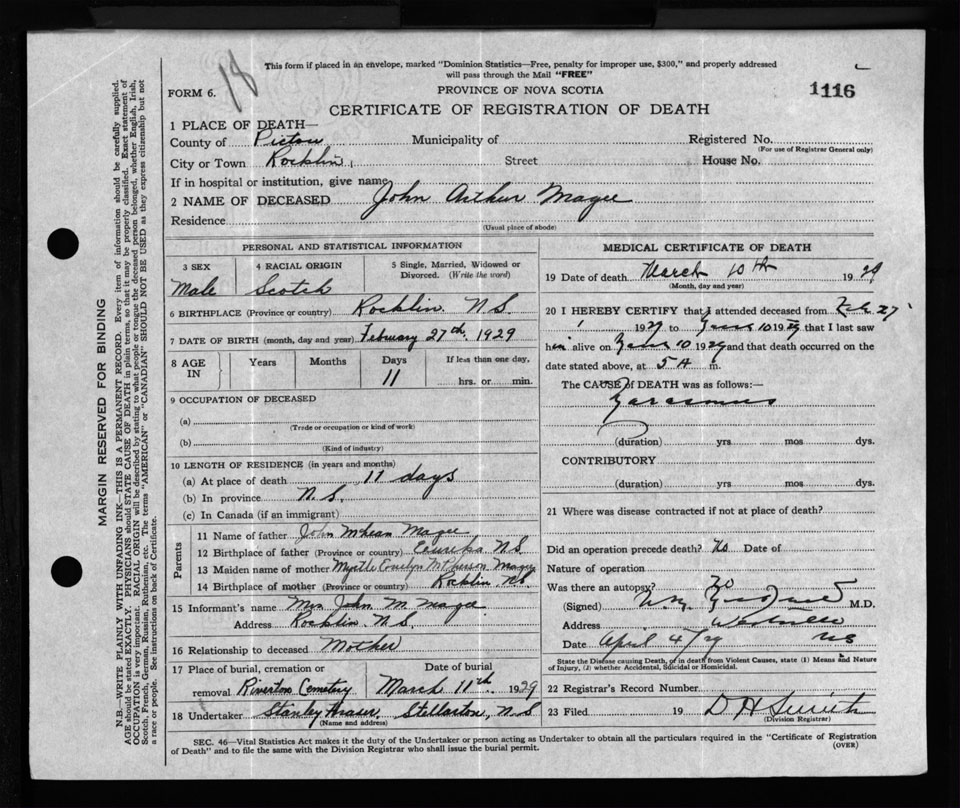 18
This form if placed in an envelope, marked "Dominion Statistics—Free, penalty for improper use, $300," and properly addressed
will pass through the Mail "FREE"
FORM 6.
PROVINCE OF NOVA SCOTIA
1116
CERTIFICATE OF REGISTRATION OF DEATH
1 PLACE OF DEATH—
County of Pictou Municipality of Registered No.
(For use of Registrar General only)
City or Town Rocklin Street House No.
If in hospital or institution, give name
2 NAME OF DECEASED John Arthur Magee
Residence
(Usual place of abode)
PERSONAL AND STATISTICAL INFORMATION
3 SEX 4 RACIAL ORIGIN 5 Single, Married, Widowed or
Divorced. (Write the word)
Male Scotch
6 BIRTHPLACE (Province or country) Rocklin N.S.
7 DATE OF BIRTH (month, day and year) February 27th. 1929
8 AGE IN Years Months Days If less than one day,
11 hrs. or min.
9 OCCUPATION OF DECEASED
(a)
(Trade or occupation or kind of work)
(b)
(Kind of industry)
10 LENGTH OF RESIDENCE (in years and months)
(a) At place of death 11 days
(b) In province N.S.
(c) In Canada (if an immigrant)
Parents
11 Name of father John McLean Magee
12 Birthplace of father (Province or country) Eureka N.S.
13 Maiden name of mother Myrtle McPherson Magee
14 Birthplace of mother (Province or country) Rocklin N.S.
15 Informant's name Mrs. John M. Magee
Address Rocklin N.S.
16 Relationship to deceased Mother
17 Place of burial, cremation or Date of burial
removal Riverton Cemetery March 11th. 1929
18 Undertaker Stanley Fraser, Stellarton, N.S
(Name and address)
MEDICAL CERTIFICATE OF DEATH
19 Date of death March 10th 1929
(Month, day and year)
20 I HEREBY CERTIFY that I attended deceased from Feb 27
1929 to 10 1929 that I last saw
him alive on 10 1929 and that death occurred on the
date stated above, at 5 A m.
The CAUSE of DEATH was as follows:—
(duration) yrs mos dys.
CONTRIBUTORY
(duration) yrs mos dys.
21 Where was disease contracted if not at place of death?
Did an operation precede death? No Date of
Nature of operation
Was there an autopsy? No
(Signed) M.D.
Address Westville
Date April 4/29 NS
State the Disease causing Death, or in death from Violent Causes, state (1) Means and Nature
of Injury, (2) whether Accidental, Suicidal or Homicidal.
22 Registrar's Record Number
23 Filed 19 D H Smith
(Division Registrar)
SEC. 46—Vital Statistics Act makes it the duty of the Undertaker or person acting as Undertaker to obtain all the particulars required in the "Certificate of Registration
of Death" and to file the same with the Division Registrar who shall issue the burial permit. (OVER)
MARGIN RESERVED FOR BINDING
N.B.—WRITE PLAINLY WITH UNFADING INK—THIS IS A PERMANENT RECORD. Every item of information should be carefully supplied.
AGE should be stated EXACTLY. PHYSICIANS should STATE CAUSE OF DEATH in plain terms, so that it may be properly classified. Exact statement of
OCCUPATION is very important. RACIAL ORIGIN will be described by stating to what people or tongue the deceased person belonged, whether English, Irish,
Scotch, French, German, Russian, Ruthenian, etc. The terms "AMERICAN" or "CANADIAN" SHOULD NOT BE USED as they express citizenship but not
a race or people. See instructions on back of Certificate.